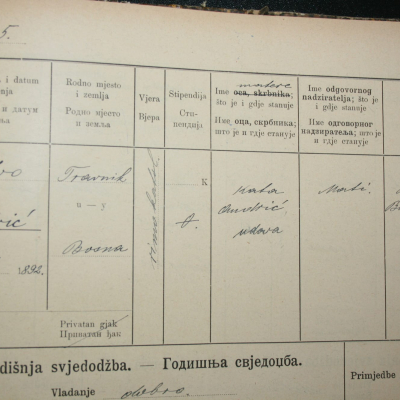 5.
i datum
Rodno mjesto
i zemlja
Родно мјесто
и земља
Vjera
Вјера
Stipendija
Сти-
пендија
matere
Ime oca, skrbnika;
što je i gdje stanuje
Име оца, скрбника;
што је и гдје станује
Ime odgovornog
nadziratelja; što je
i gdje stanuje
Име одговорног
надзиратеља; што је
и гдје станује
и датум
vić
1892.
Travnik
u — у
Bosna
rimo-katol.
K
Kata
Andrić,
udova
Mati.
Privatan gjak
Приватан ђак
dišnja svjedodžba. — Годишња свједоџба.
Vladanje dobro
Primjedbe